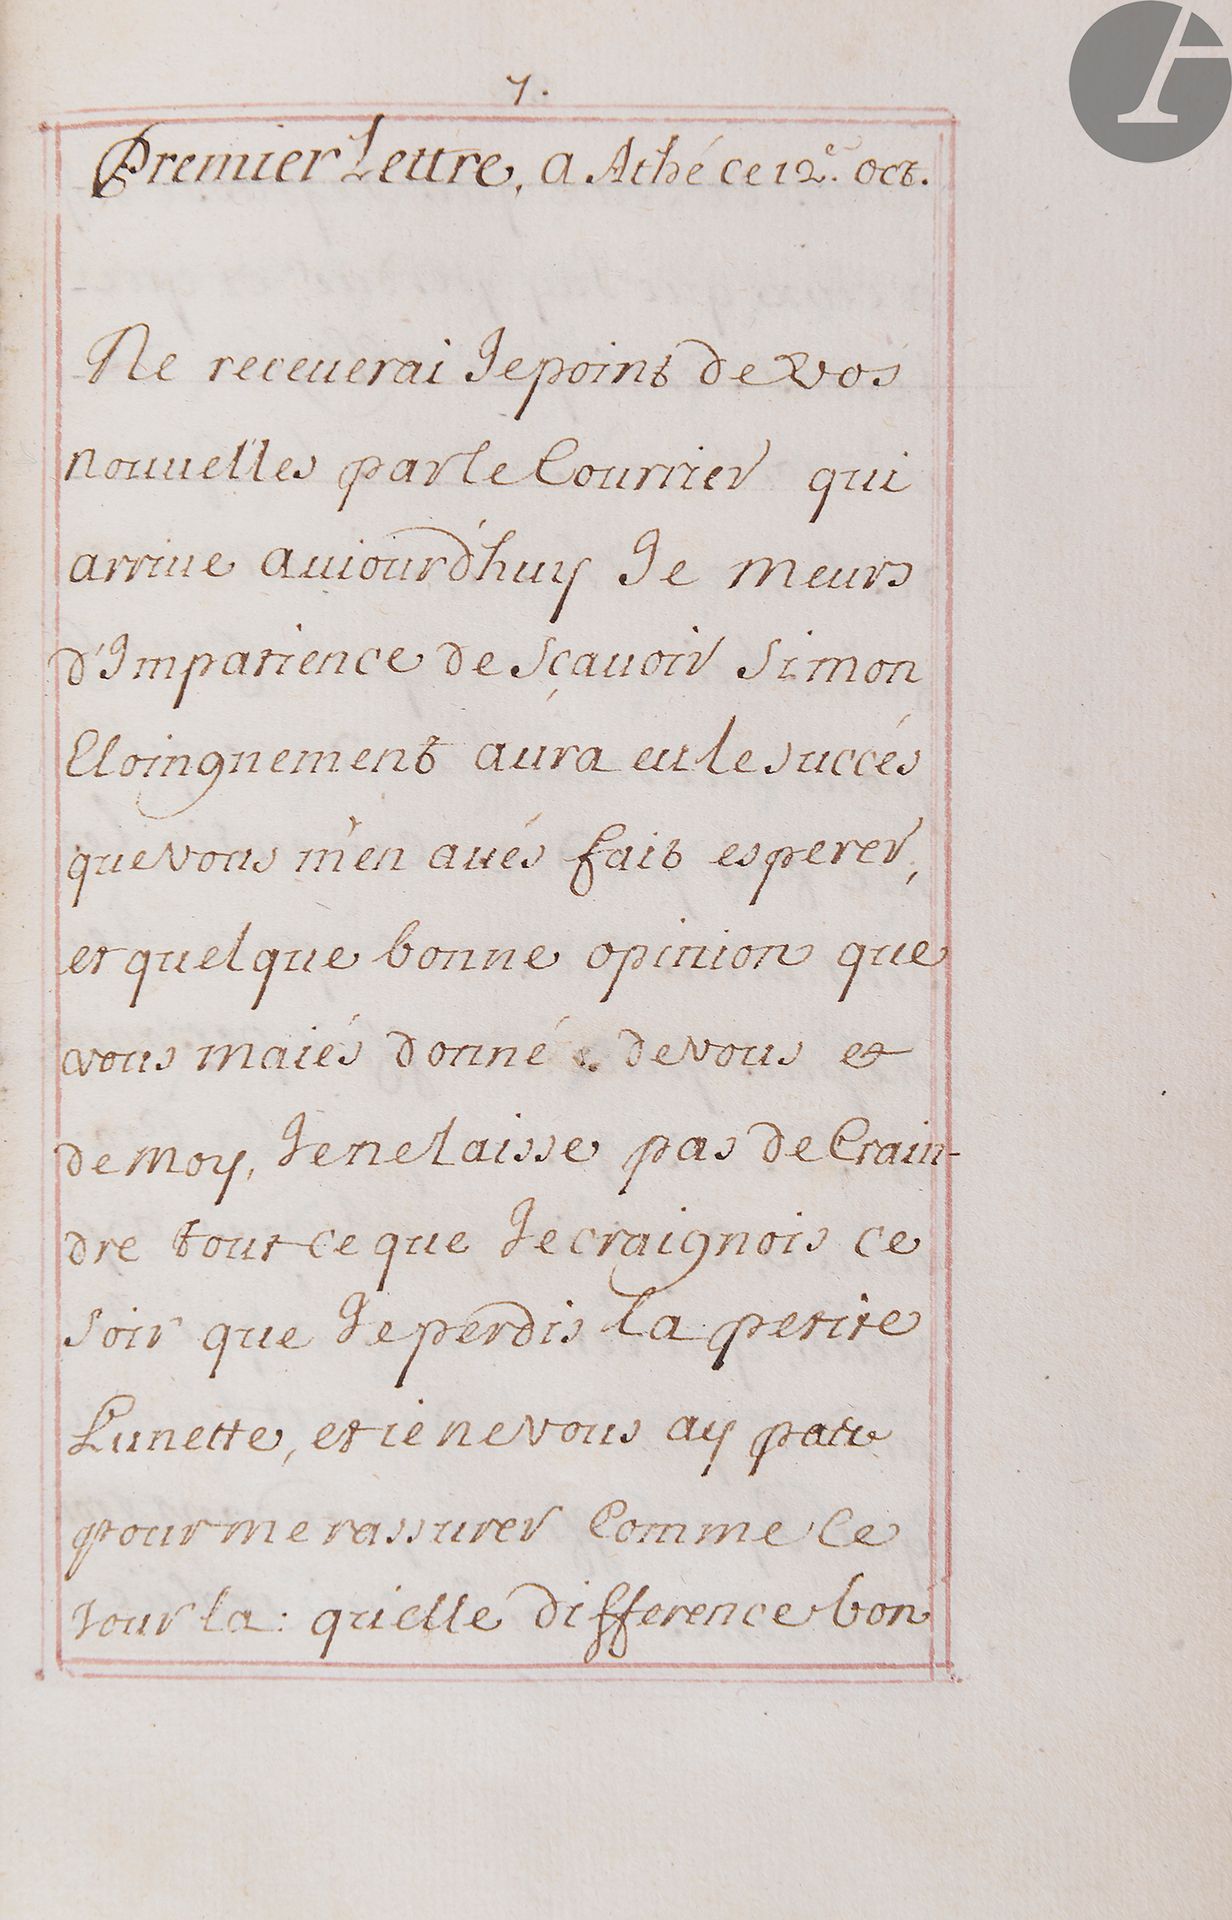 7.
Premier Lettre, a Athé ce 12e. oct.
Ne receuerai Je point de vos
nouuelles par le Courrier qui
arriue auiourd'huy Je meurs
d'Impatience de sçauoir si mon
Eloingnement aura eu le succés
que vous m'en aués fait esperer,
et quelque bonne opinion que
vous maiés donné de vous et
de moy, Je ne laisse pas de Crain-
dre tout ce que Je craignois ce
soir que Je perdis la petite
Lunette, et ie ne vous ay pas
pour me rassurer Comme Ce
iour la: quelle difference bon